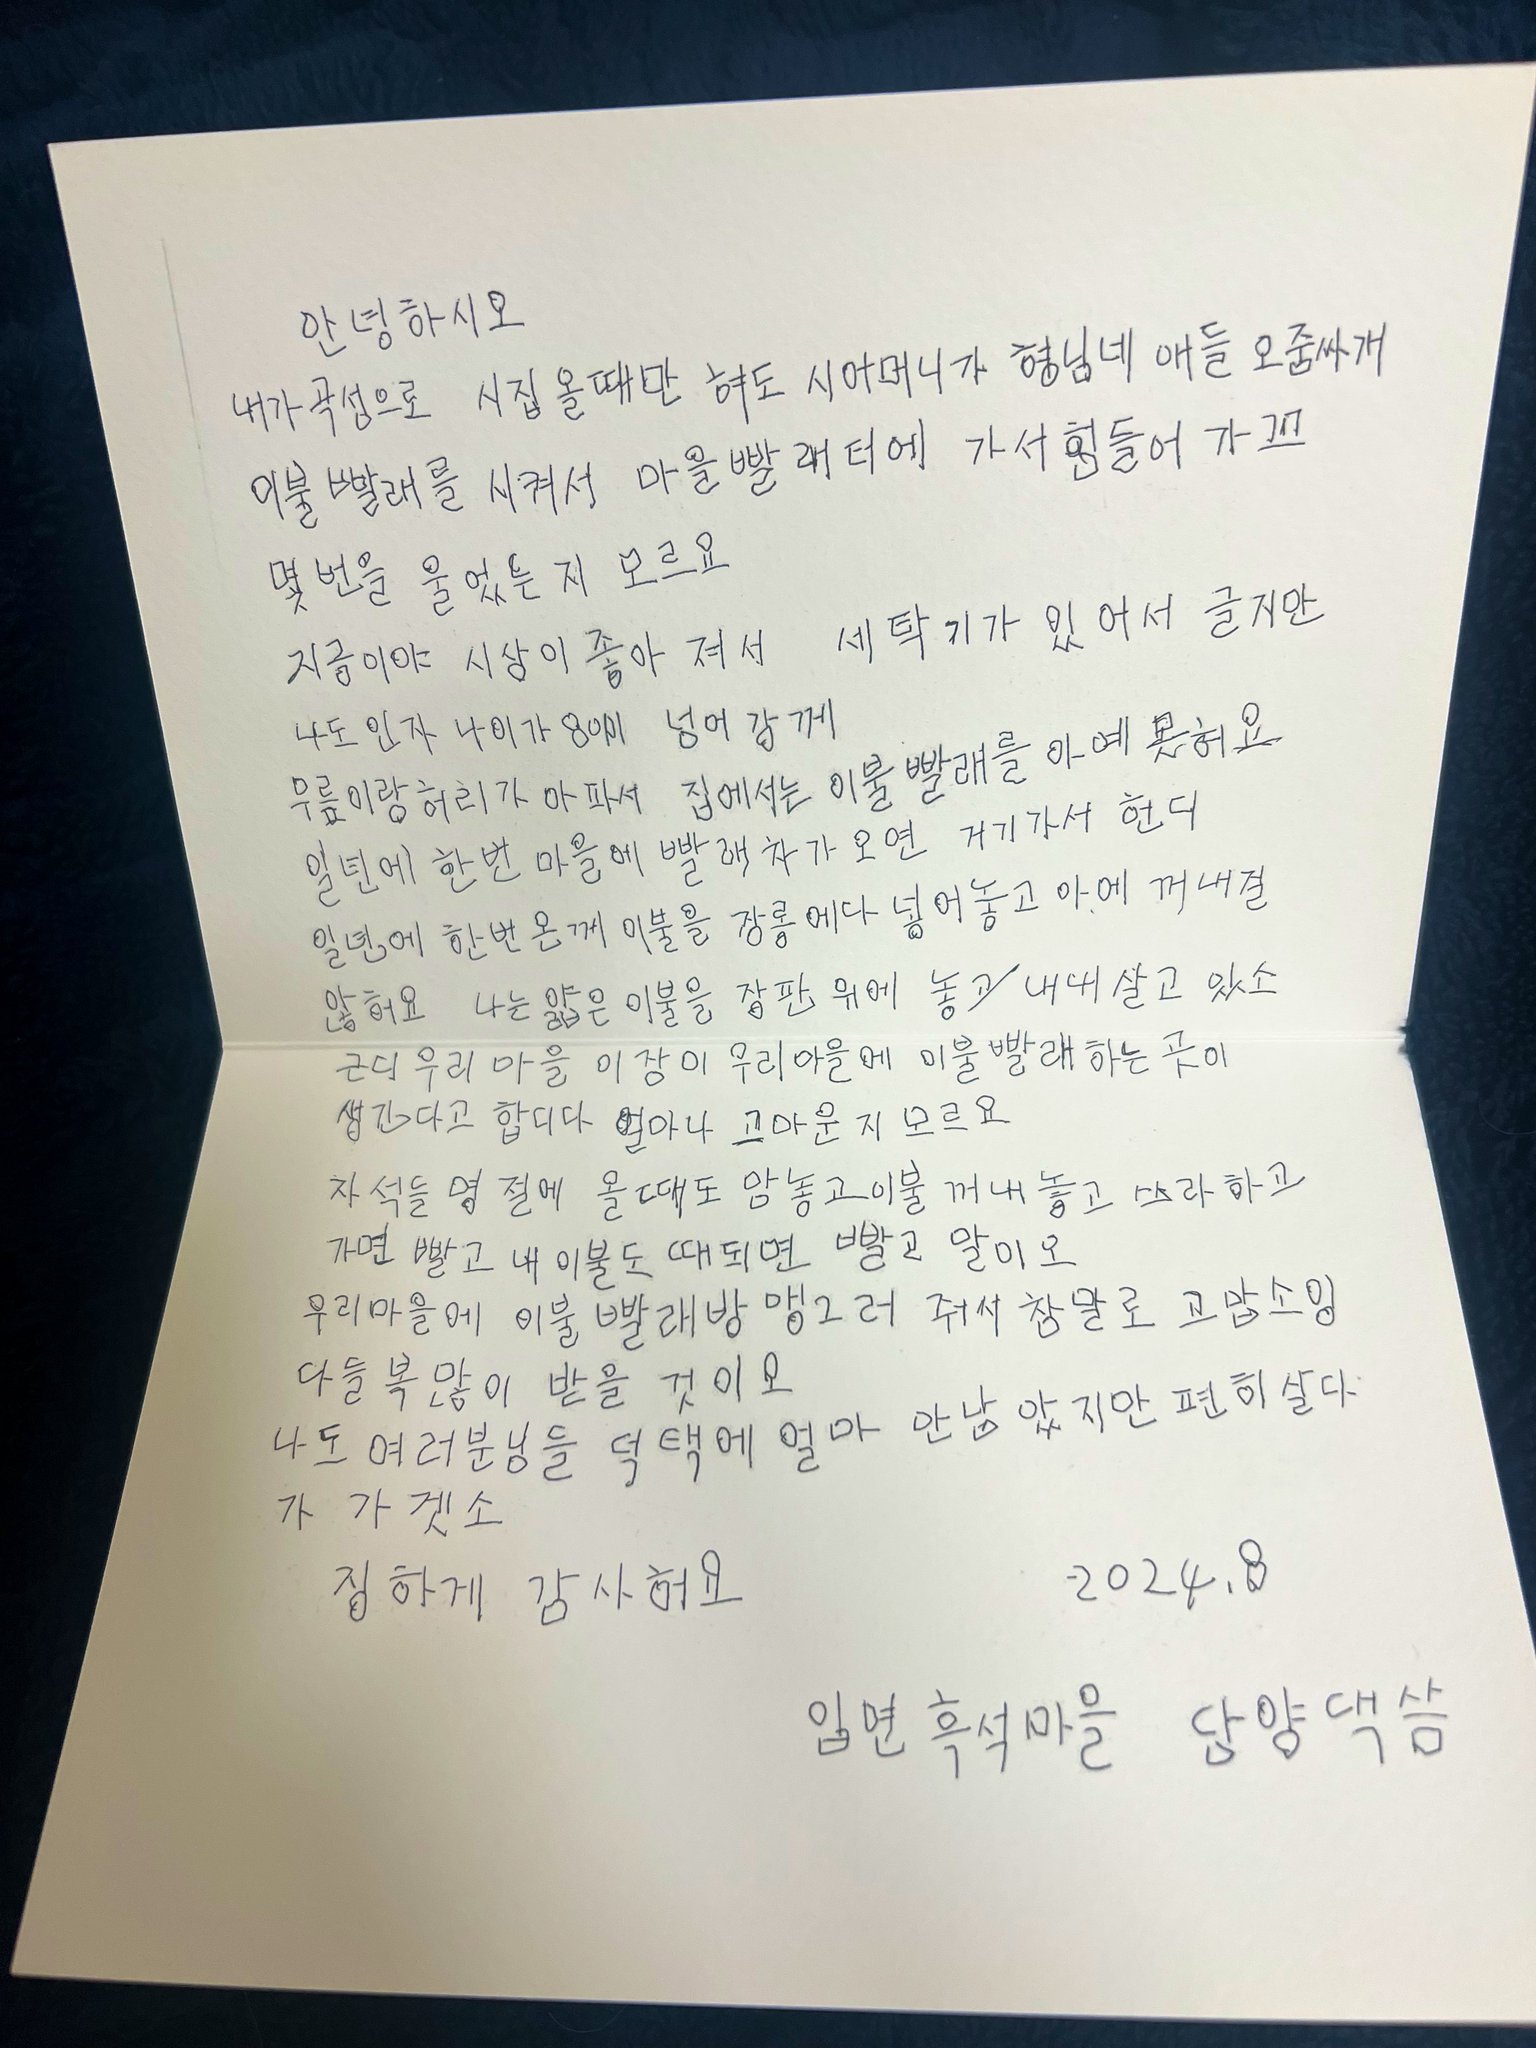 안녕하시오
내가곡성으로 시집올때만 혀도 시어머니가 형님네 애들 오줌싸개
이불빨래를 시켜서 마을빨래터에 가서힘들어가꼬
몇번을 울었는지 모르요
지금이야 시상이 좋아져서 세탁기가 있어서 글지만
나도인자 나이가 80이 넘어감께
무릎이랑허리가 아파서 집에서는 이불빨래를 아예 못혀요
일년에 한번 마을에 빨래차가 오면 거기가서 헌디
일년에 한번온께 이불을 장롱에다 넣어놓고 아예 꺼내질
않혀요 나는 얇은 이불을 장판 위에 놓고 내내 살고 있소
근디 우리 마을 이장이 우리마을에 이불빨래하는 곳이
생긴다고 합디다 얼마나 고마운지 모르요
자석들 명절에 올때도 맘놓고이불 꺼내놓고 쓰라하고
가면 빨고 내이불도 때되면 빨고 말이오
우리마을에 이불빨래방 맹그러 줘서 참말로 고맙소잉
다들 복많이 받을 것이오
나도 여러분님들 덕택에 얼마 안남았지만 편히살다
가 가겟소
징하게 감사혀요 2024.8
입면흑석마을 담양댁삼